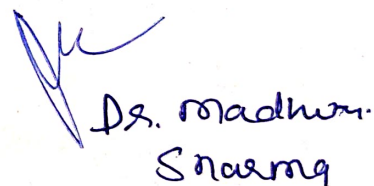 Dr. Madhu.
Sharma